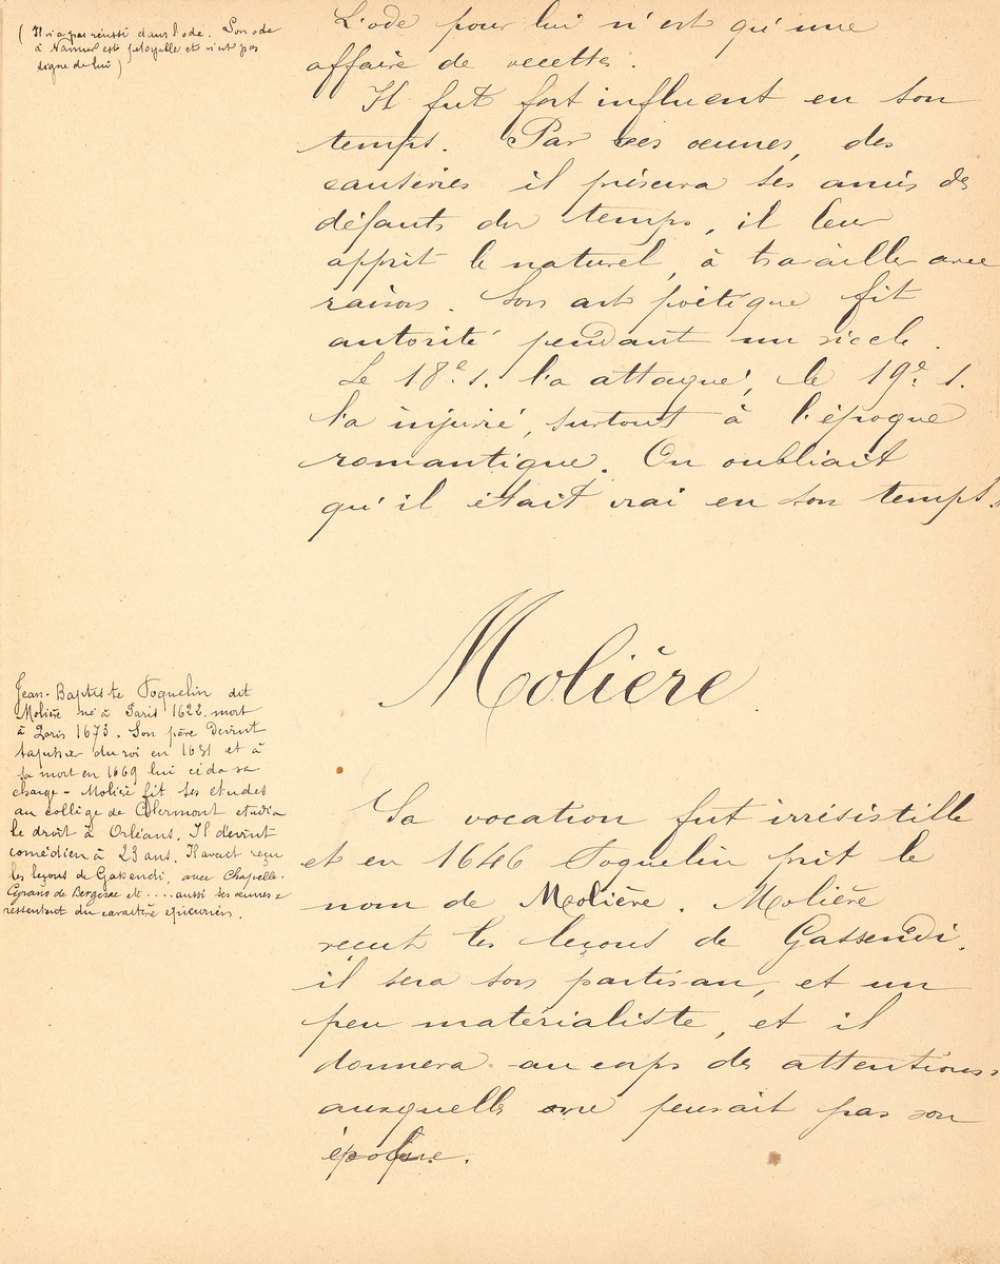 (Il n'a pas réussi dans l'ode. Son ode
à Namur est pitoyable et n'est pas
digne de lui)
L'ode pour lui n'est qu'une
affaire de recettes.
Il fut fort influent en son
temps. Par ses œuvres, des
causeries il préserva ses amis des
défauts du temps, il leur
apprit le naturel, à travailler avec
raison. Son art poétique fit
autorité pendant un siècle.
Le 18e s. l'a attaqué, le 19e s.
l'a injurié, surtout à l'époque
romantique. On oubliait
qu'il était vrai en son temps.
Molière
Jean-Baptiste Poquelin dit
Molière né à Paris 1622. mort
à Paris 1673. Son père devint
tapissier du roi en 1631 et à
sa mort en 1669 lui céda sa
charge - Molière fit ses études
au collège de Clermont étudia
le droit à Orléans. Il devint
comédien à 23 ans. Il avait reçu
les leçons de Gassendi, avec Chapelle.
Cyrano de Bergerac etc .... aussi ses œuvres se
ressentent du caractère épicurien.
Sa vocation fut irrésistible
et en 1646 Poquelin prit le
nom de Molière. Molière
reçut les leçons de Gassendi.
il sera son partisan, et un
peu matérialiste, et il
donnera au corps des attentions
auxquelles ne pensait pas son
époque.